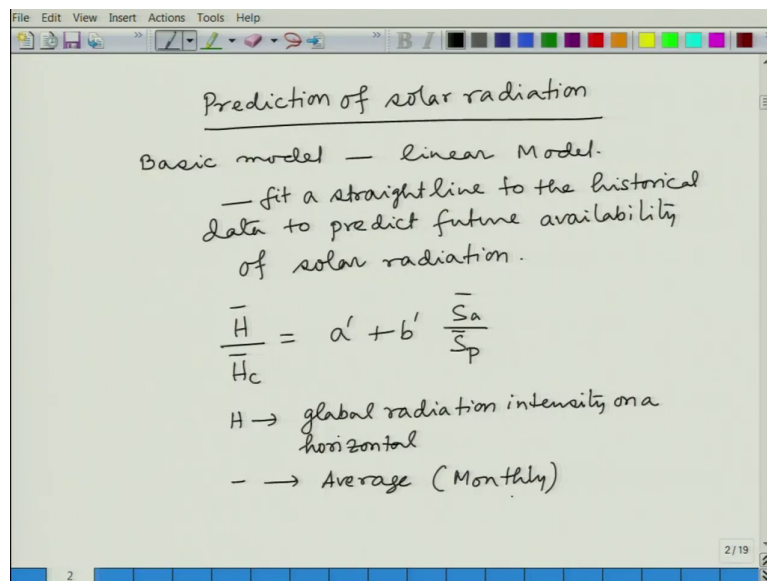 File Edit View Insert Actions Tools Help
Prediction of solar radiation
Basic model — linear Model.
— fit a straight line to the historical
data to predict future availability
of solar radiation.
H̅/H̅c = a′ + b′ S̅a/S̅p
H → glabal radiation intensity on a
horizontal
– → Average (Monthly)
2/19
2